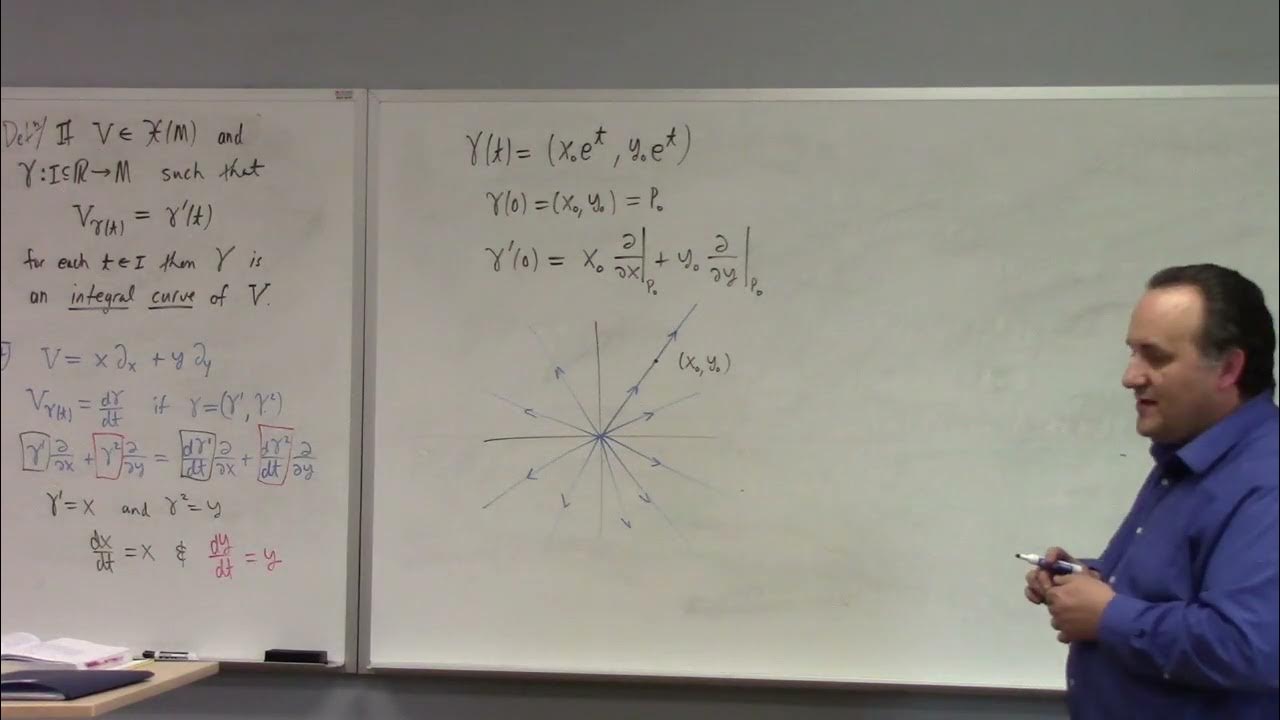 Def'n/ If V ∈ 𝔛(M) and
γ : I ⊆ ℝ → M such that
V_γ(t) = γ'(t)
for each t ∈ I then γ is
an integral curve of V.
V = x ∂_x + y ∂_y
V_γ(t) = dγ/dt if γ = (γ¹, γ²)
γ¹ ∂/∂x + γ² ∂/∂y = dγ¹/dt ∂/∂x + dγ²/dt ∂/∂y
γ¹ = x and γ² = y
dx/dt = x & dy/dt = y
γ(t) = (x₀eᵗ, y₀eᵗ)
γ(0) = (x₀, y₀) = P₀
γ'(0) = x₀ ∂/∂x|_P₀ + y₀ ∂/∂y|_P₀
(x₀, y₀)